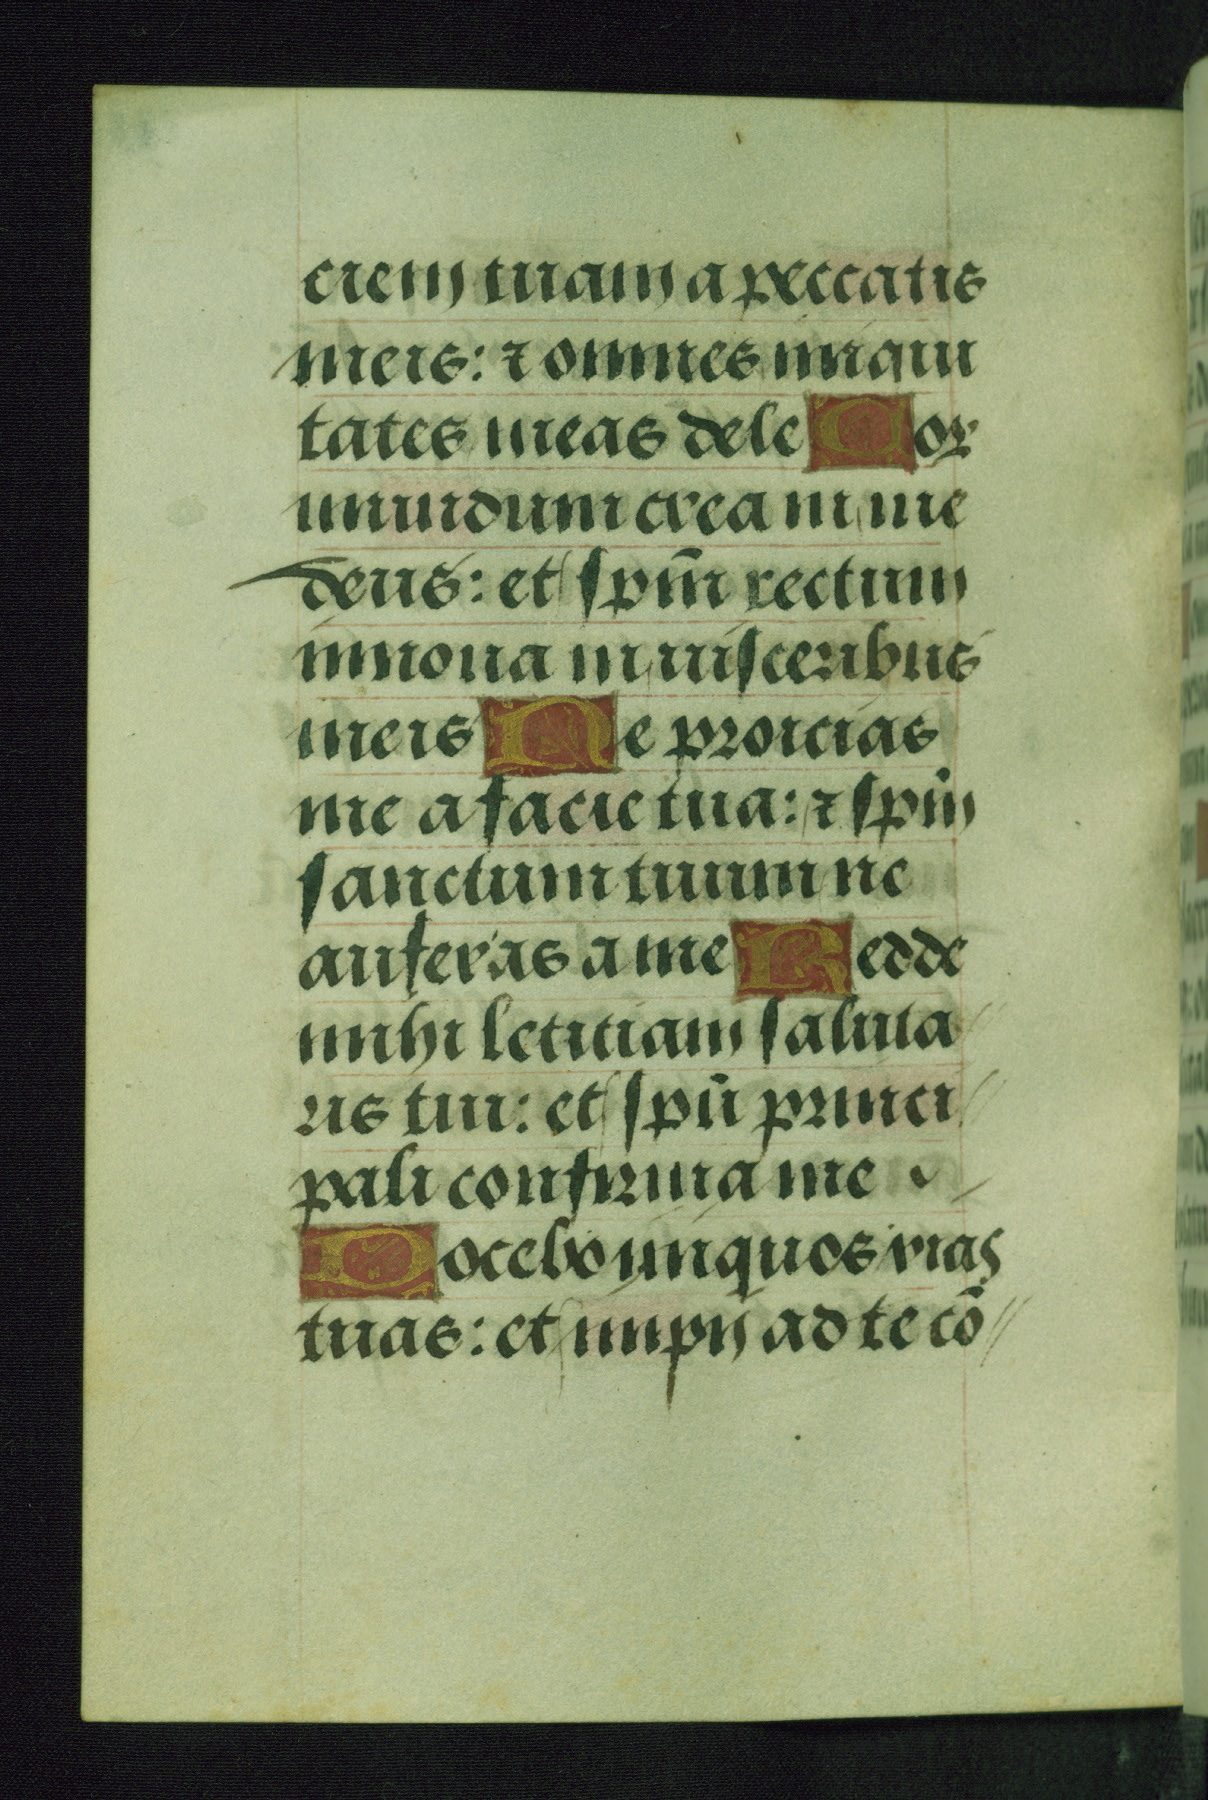 ciem tuam a peccatis
meis: ⁊ omnes iniqui
tates meas dele Cor
mundum crea in me
deus: et spm̄ rectum
innoua in uisceribus
meis Ne proicias
me a facie tua: ⁊ spm̄
sanctum tuum ne
auferas a me Redde
mihi letitiam saluta
ris tui: et spū princi
pali confirma me
Docebo iniquos vias
tuas: et impij ad te cō